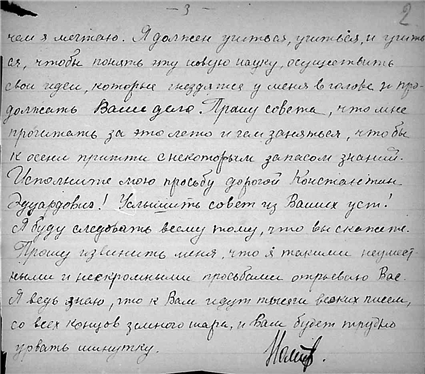 - 3 -
2
чем я мечтаю. Я должен учиться, учиться, и учить-
ся, чтобы понять эту новую науку, осуществить
свои идеи, которые гнездятся у меня в голове и про-
должать Ваше дело. Прошу совета, что мне
прочитать за это лето и чем заняться, чтобы
к осени притти с некоторым запасом знаний.
Исполните мою просьбу дорогой Константин
Эдуардович! Услышить совет из Ваших уст!
Я буду следовать всему тому, что вы скажете.
Прошу извинить меня, что я такими неумест-
ными и нескромными просьбами отрываю Вас.
Я ведь знаю, что к Вам идут тысячи всяких писем,
со всех концов земного шара, и Вам будет трудно
урвать минутку.